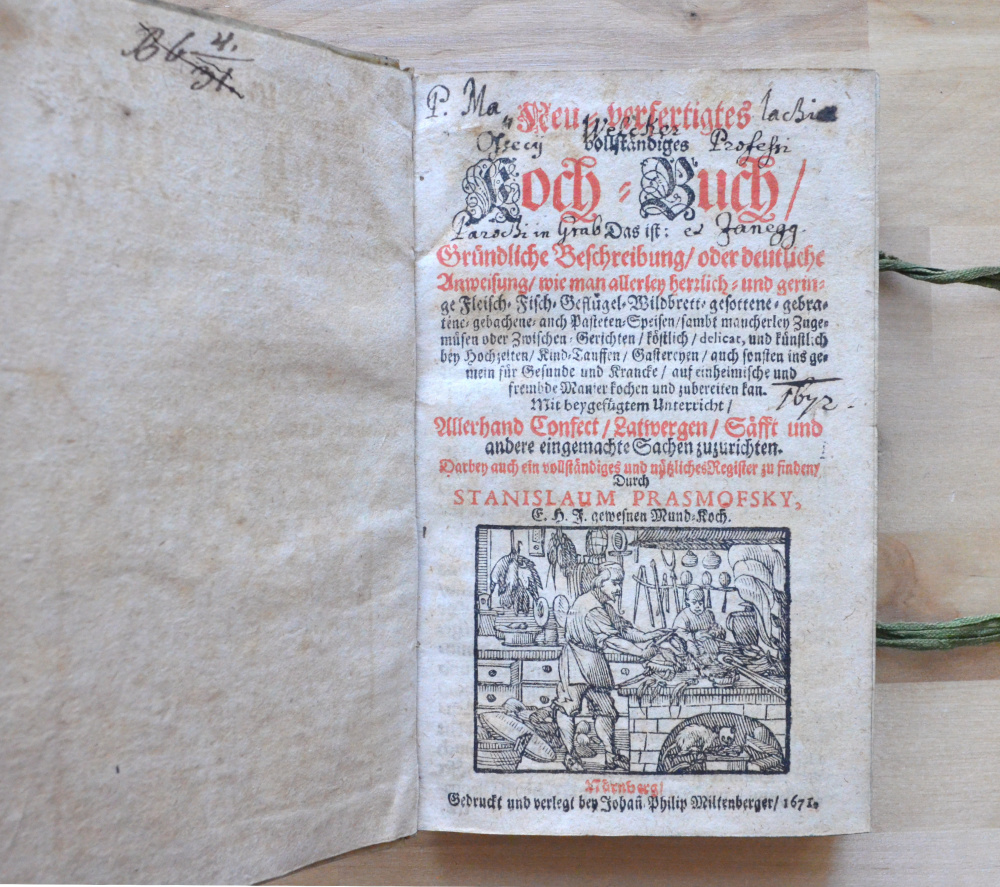 4.
P. Ma
Neu-verfertigtes
vollständiges
Professi
Koch-Buch/
Parochi in Grab
Das ist:
et Zanegg.
Gründliche Beschreibung/ oder deutliche
Anweisung/ wie man allerley herrlich- und gerin-
ge Fleisch- Fisch- Geflügel- Wildbrett- gesottene- gebra-
tene- gebachene- auch Pasteten-Speisen/sambt mancherley Zuge-
müsen oder Zwischen-Gerichten/ köstlich/ delicat, und künstlich
bey Hochzeiten/ Kind-Tauffen/ Gastereyen/ auch sonsten ins ge-
mein für Gesunde und Krancke/ auf einheimische und
frembde Manier kochen und zubereiten kan.
1672.
Mit beygefügtem Unterricht/
Allerhand Confect/ Latwergen/ Säfft und
andere eingemachte Sachen zuzurichten.
Darbey auch ein vollständiges und nützliches Register zu finden/
Durch
STANISLAUM PRASMOFSKY,
E. H. J. gewesnen Mund-Koch.
Nürnberg/
Gedruckt und verlegt bey Johañ Philip Miltenberger/ 1671.